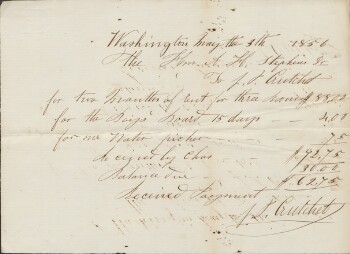 Washington May the 4th 1850
the Hon. A. H. Stephens Dr
To J. F. Crutchet
for two months of rent for three rooms $ 88.00
for the Boy's Board 15 days - 4.00
for one Water picher - 75
$ 92,75
Received by Chas 30.00
Balance due - $ 62,75
Received Payment
J. F. Crutchet